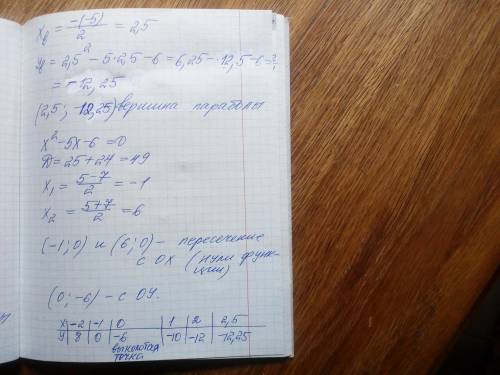 xв = -(-5)/2 = 2,5
yв = 2,5² - 5·2,5 - 6 = 6,25 - 12,5 - 6 =
= -12,25
(2,5; -12,25) вершина параболы
x² - 5x - 6 = 0
D = 25 + 24 = 49
x₁ = (5-7)/2 = -1
x₂ = (5+7)/2 = 6
(-1; 0) и (6; 0) - пересечение
с OX (нули функ-
ции)
(0; -6) - с OY.
x | -2 | -1 | 0 | 1 | 2 | 2,5
y | 8 | 0 | -6 | -10 | -12 | -12,25
выколотая
точка